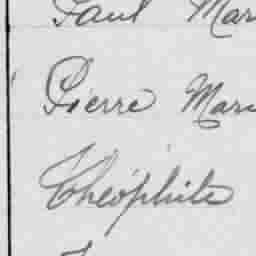 Paul Mar
Pierre Marc
Théophile